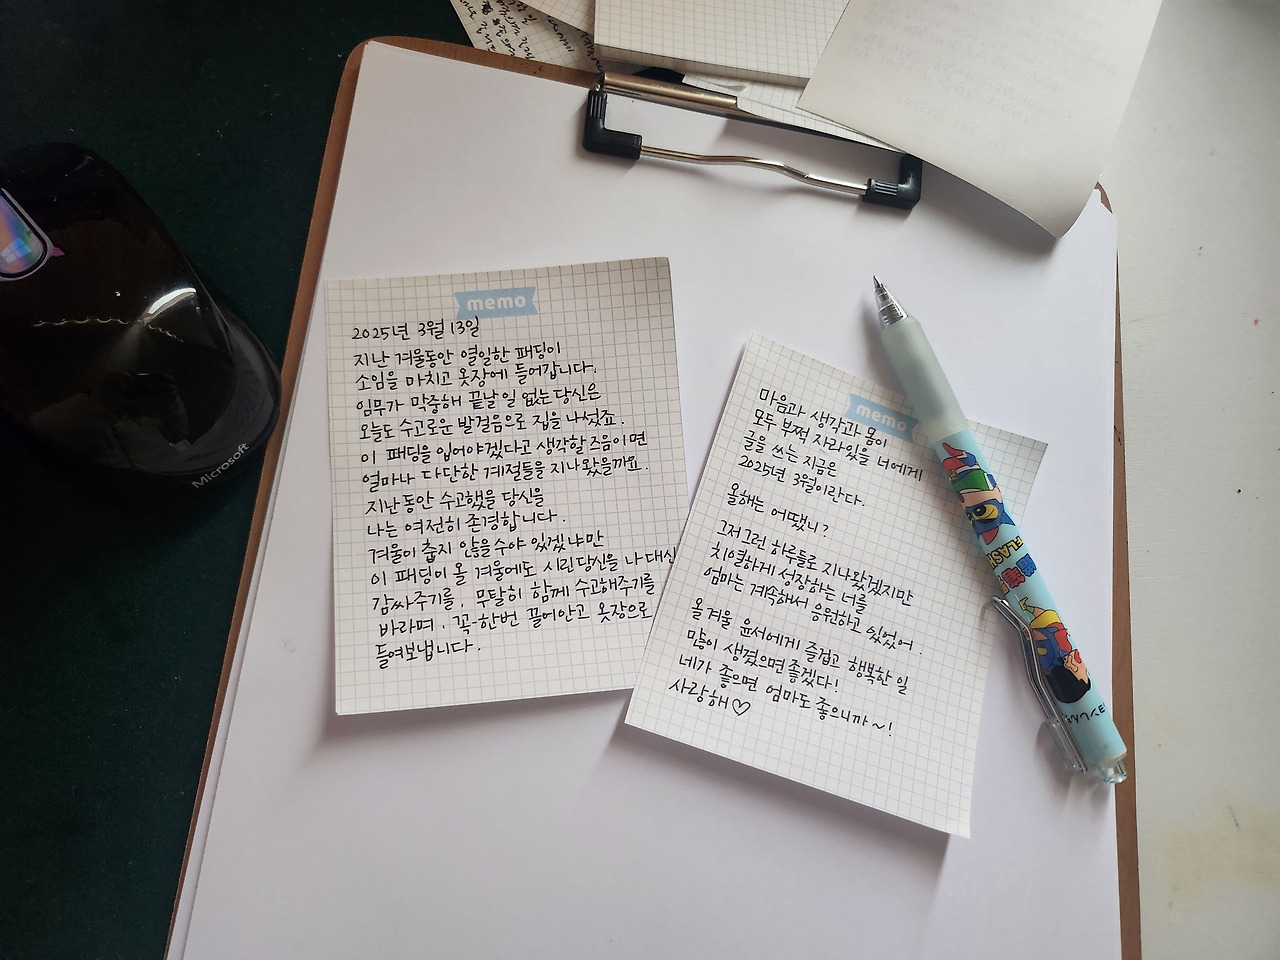 memo
2025년 3월 13일
지난 겨울동안 열일한 패딩이
소임을 마치고 옷장에 들어갑니다.
임무가 막중해 끝날 일 없는 당신은
오늘도 수고로운 발걸음으로 집을 나섰죠.
이 패딩을 입어야겠다고 생각할 즈음이면
얼마나 다단한 계절들을 지나왔을까요.
지난동안 수고했을 당신을
나는 여전히 존경합니다.
겨울이 춥지 않을 수야 있겠냐만
이 패딩이 올 겨울에도 시린 당신을 나 대신
감싸주기를, 무탈히 함께 수고해주기를
바라며. 꼭 한번 끌어안고 옷장으로
들여보냅니다.
memo
마음과 생각과 몸이
모두 부쩍 자라있을 너에게
글을 쓰는 지금은
2025년 3월이란다.
올해는 어땠니?
그저그런 하루들로 지나왔겠지만
치열하게 성장하는 너를
엄마는 계속해서 응원하고 있었어.
올 겨울 윤서에게 즐겁고 행복한 일
많이 생겼으면 좋겠다!
네가 좋으면 엄마도 좋으니까~!
사랑해♡
Microsoft
FLASH